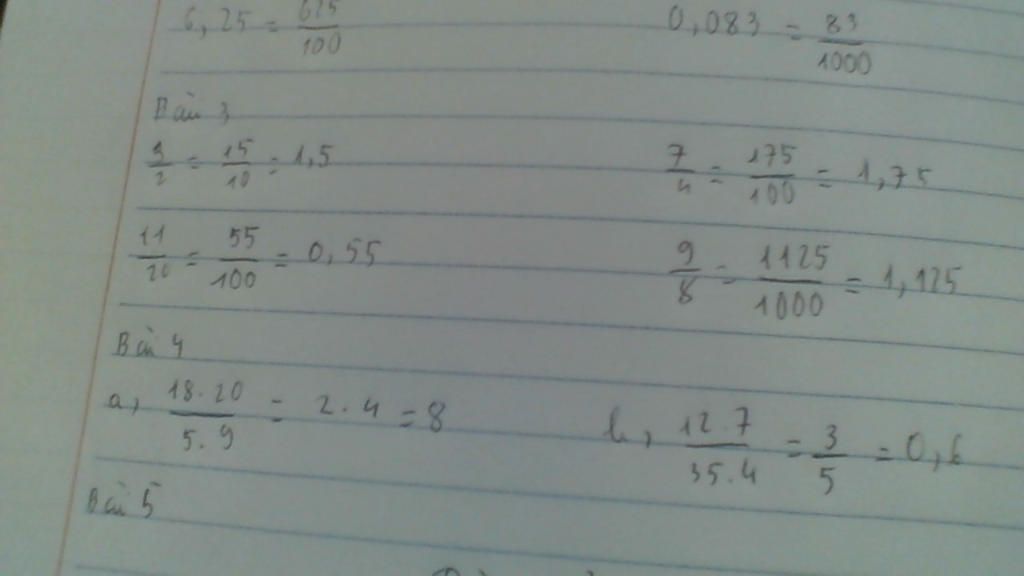 6,25 = 625/100 0,083 = 83/1000
Bài 3
3/2 = 15/10 = 1,5 7/4 = 175/100 = 1,75
11/20 = 55/100 = 0,55 9/8 = 1125/1000 = 1,125
Bài 4
a, 18.20/5.9 = 2.4 = 8 b, 12.7/35.4 = 3/5 = 0,6
Bài 5